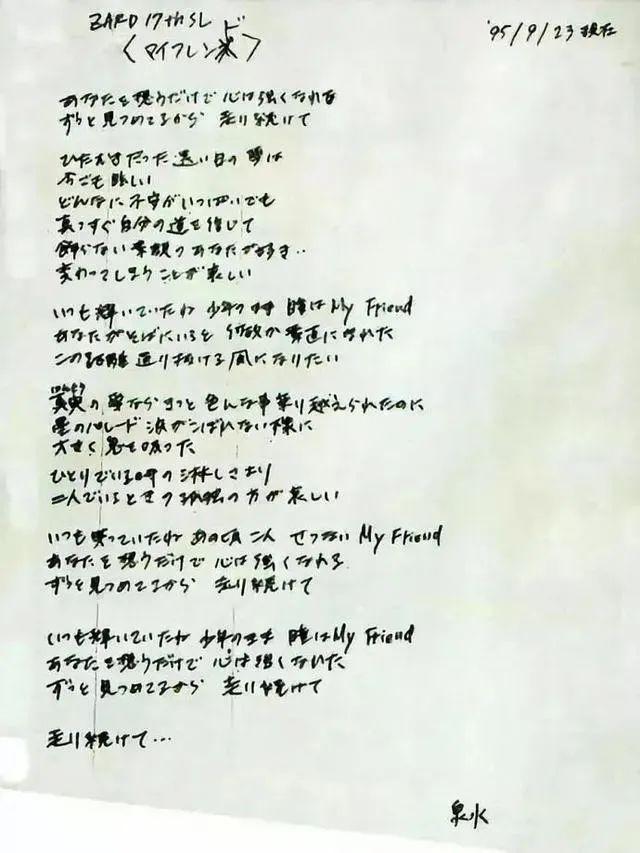 ZARD 17th SL
'95/9/23 現在
〈マイフレンド〉
あなたを想うだけで 心は強くなれる
ずっと見つめてるから 走り続けて
ひたむきだった 遠い日の夢は
今でも眩しい
どんなに不安がいっぱいでも
真っすぐ自分の道を信じて
飾らない素顔のあなたが好き‥
変わってしまうことが悲しい
いつも輝いていたね 少年のまま 瞳はMy Friend
あなたがそばにいると 何故か素直になれた
この距離 通り抜ける風になりたい
ほんとう
真実の夢ならきっと色んな事乗り越えられたのに
星のパレード 涙がこぼれない様に
大きく息を吸った
ひとりでいる時の淋しさより
二人でいるときの孤独の方が哀しい
いつも笑っていたね あの頃二人 せつない My Friend
あなたを想うだけで 心は強くなれる
ずっと見つめてるから 走り続けて
いつも輝いていたね 少年のまま 瞳はMy Friend
あなたを想うだけで 心は強くなれた
ずっと見つめてるから 走り続けて
走り続けて…
泉水